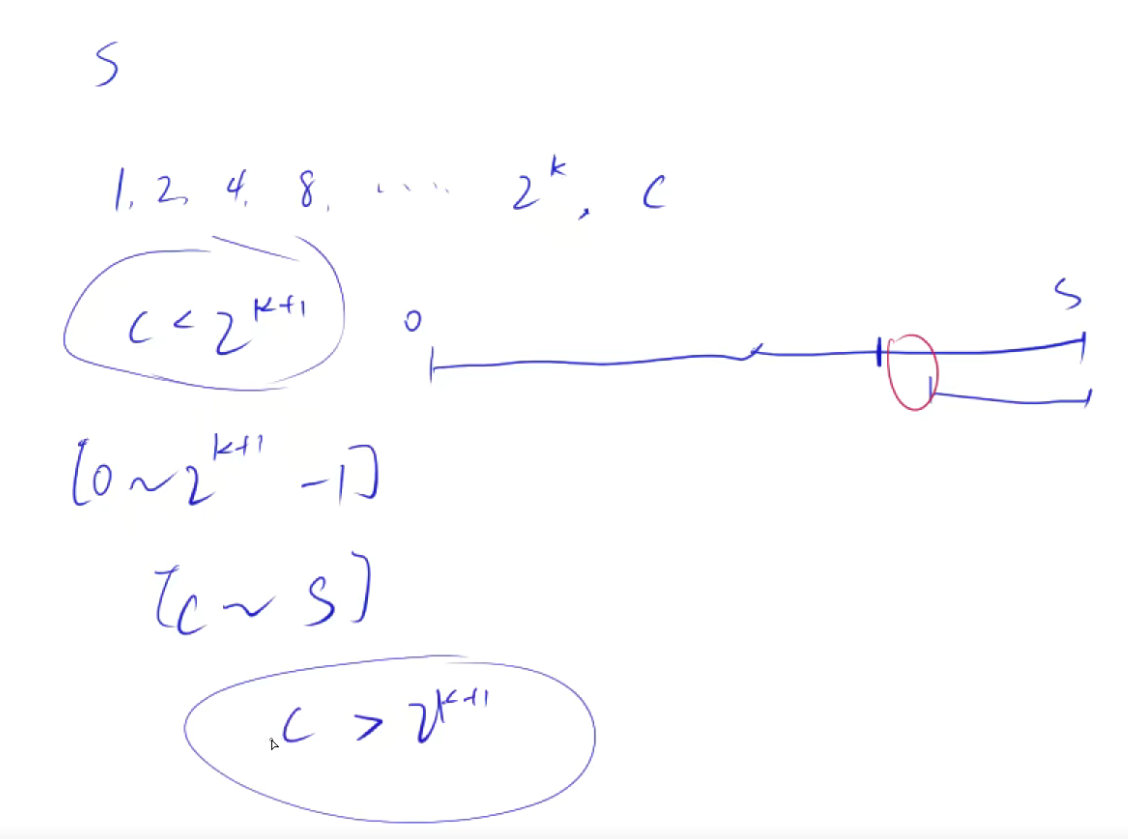 S
1, 2, 4, 8, ..... 2^k, C
C < 2^{k+1}
0
S
[0 ~ 2^{k+1} - 1]
[C ~ S]
C > 2^{k+1}